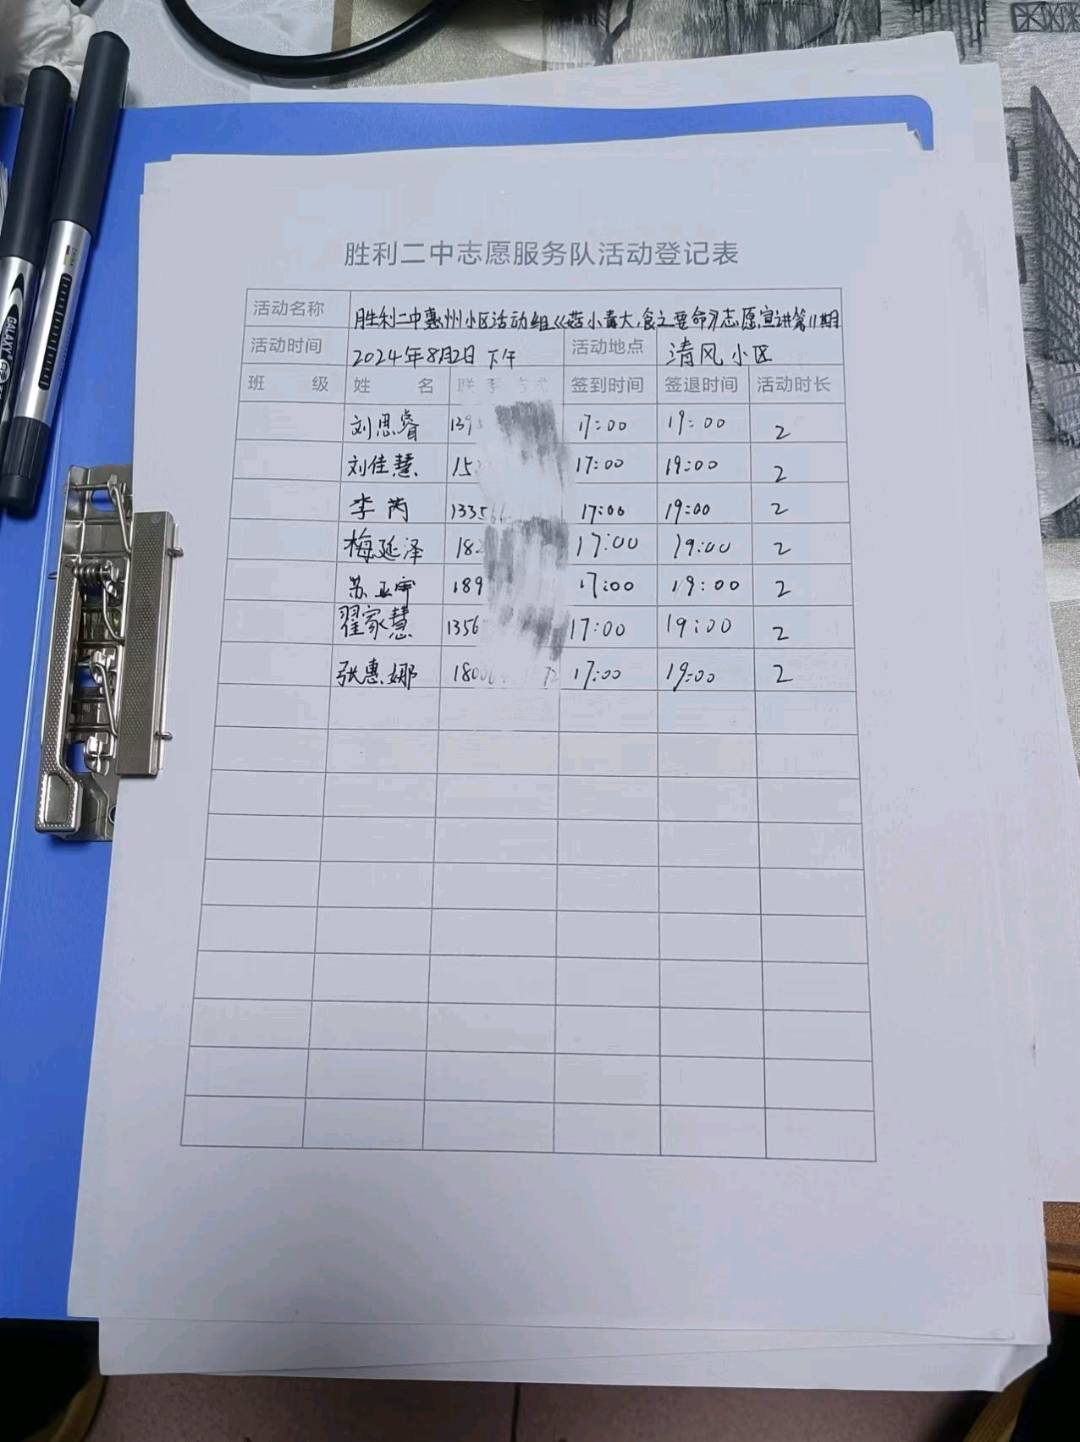 胜利二中志愿服务队活动登记表
活动名称 胜利二中惠州小区活动组《菇小毒大,食之要命》志愿宣讲第11期
活动时间 2024年8月2日 下午 活动地点 清风小区
班 级 姓 名 联系方式 签到时间 签退时间 活动时长
刘思睿 139 17:00 19:00 2
刘佳慧 15 17:00 19:00 2
李芮 1335 17:00 19:00 2
梅延泽 18 17:00 19:00 2
苏亚宁 189 17:00 19:00 2
翟家慧 1356 17:00 19:00 2
张惠娜 1800 72 17:00 19:00 2
GALAXY